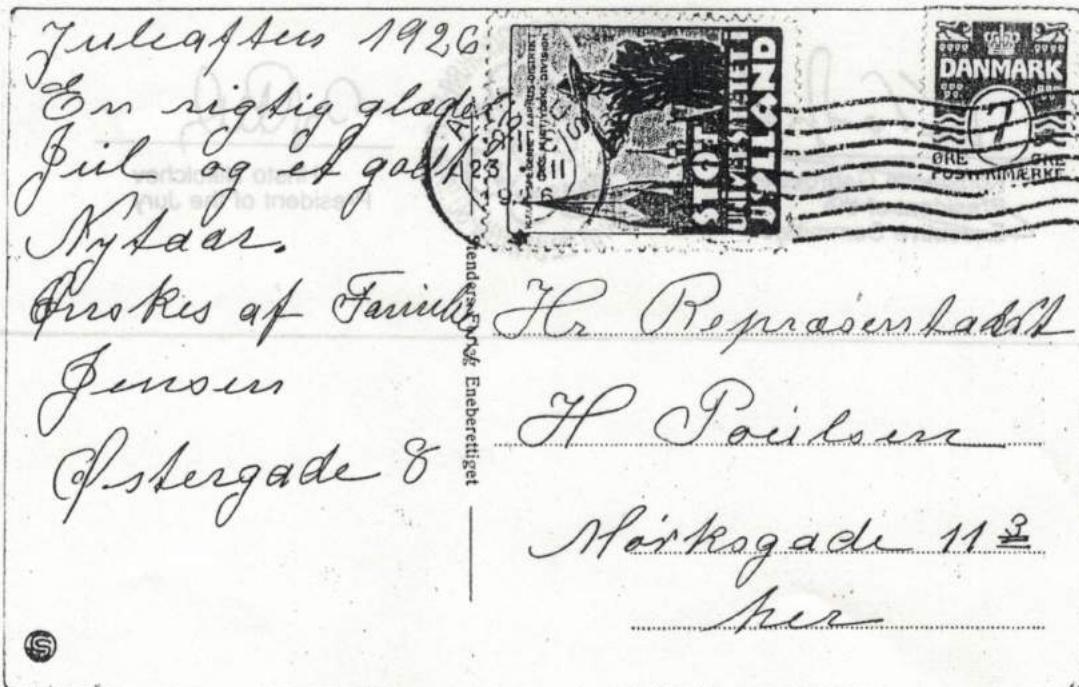 Juleaften 1926
En rigtig glædelig
Jul og et godt
Nytaar.
Ønskes af Familie
Jensen
Østergade 8
Stenders Forlag Eneberettiget
STØT
UNIVERSITETET I
JYLLAND
DANMARK
7
ØRE ØRE
POSTFRIMÆRKE
23
Hr Repræsentant
H Poulsen
Mørksgade 11 3
her
President of the Jury